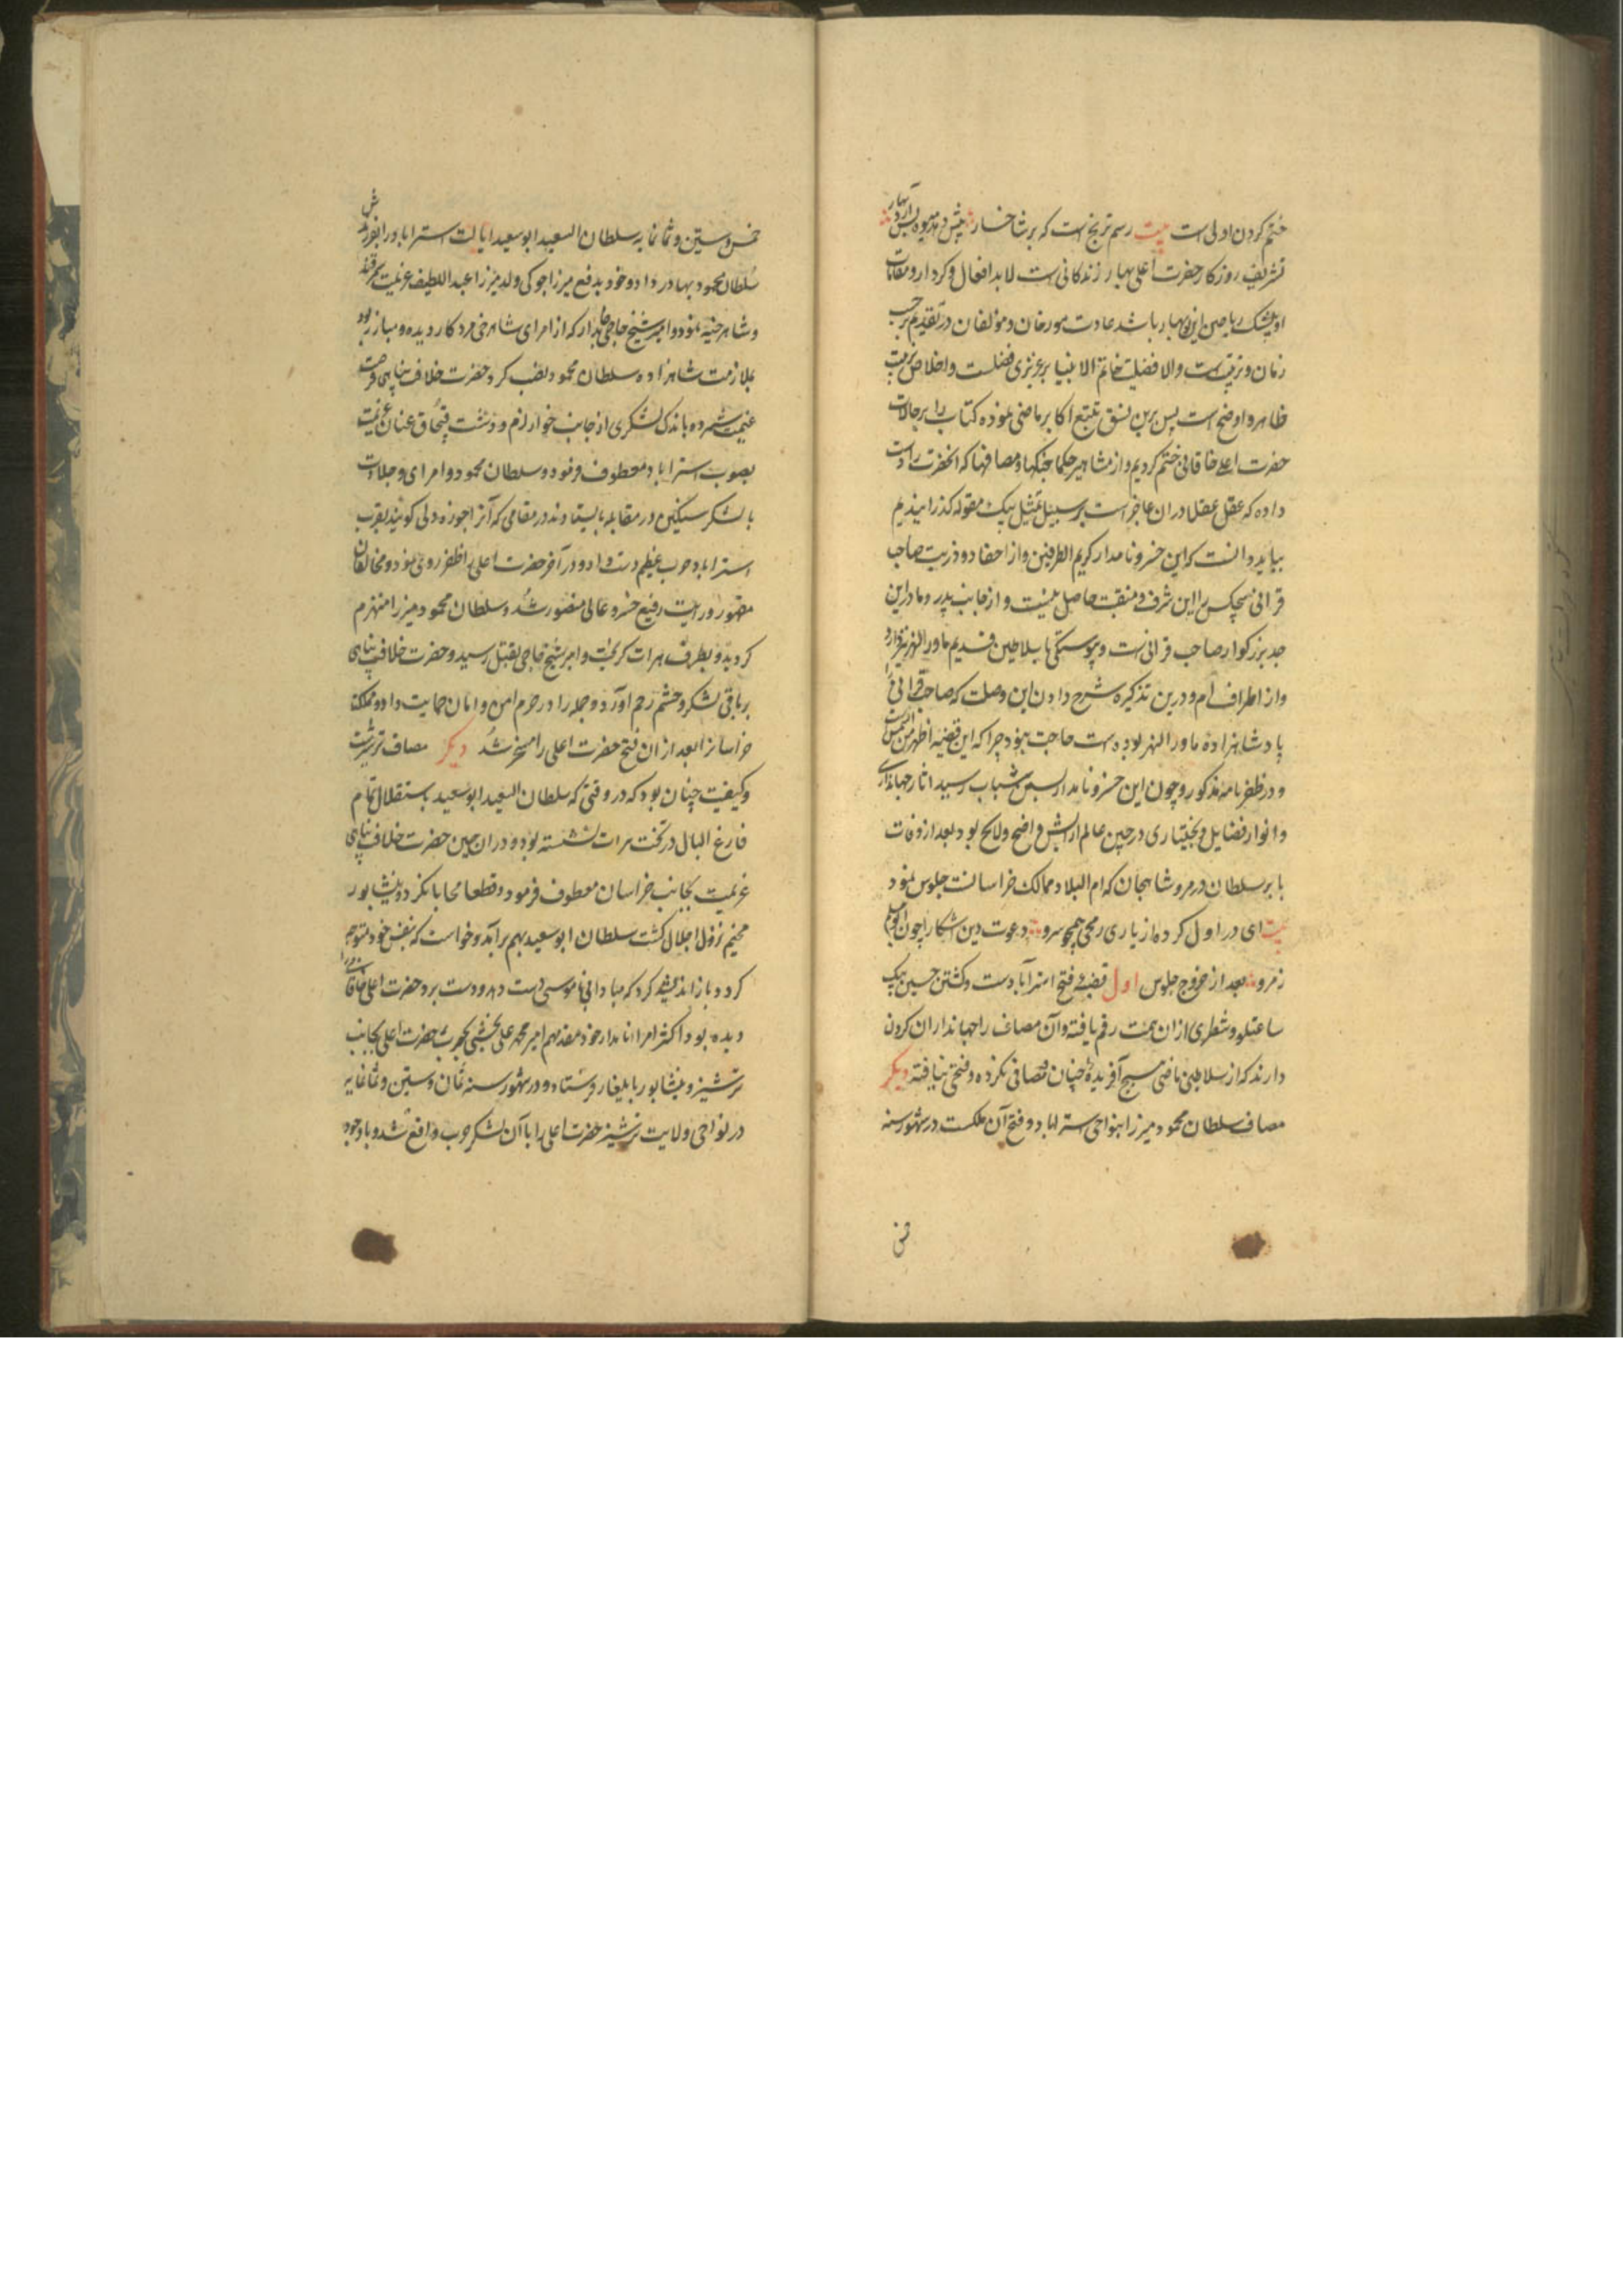 ختم کردن اولی است بیت رسم ترنج است که بر شاخسار پیش دهد میوه پس آرد بهار
تشریف روزکار حضرت اعلی بهار زندکانی است لابد افعال و کردار و مقامات
او بیشک ریاحین این بهار باشد عادت مورخان و مؤلفان در تقدیم بر حسب
زمان و ترتیب است والا فضیلت خاتم الانبیا بر عزیزی فضلست و اخلاص
ظاهر و اوضح است پس برین نسق تتبع اکابر ماضی نموده کتاب را بر حالات
حضرت اعلی خاقانی ختم کردیم و از مشاهیر جنکها و مصافها که انحضرت را دست
داده که عقل عقلا در ان عاجز است بر سبیل تمثیل بیک مقوله کذرانیدیم
بباید دانست که این خسرو نامدار کریم الطرفین و از احفاد و ذریت صاحب
قرانی هیچکس را این شرف و منقبت حاصل نیست و از جانب پدر و مادر این
جد بزرکوار صاحب قرانی است و پیوستکی با سلاطین قدیم ماورالنهر نیز دارد
و از اطراف ام و درین تذکره شرح دادن این وصلت که صاحب قرانی را
پادشاهزاده ماورالنهر بوده است حاجت نبود چرا که این قضیه اظهر من الشمس است
و در ظفرنامه مذکور و چون این خسرو نامدار بسن شباب رسید اثار جهانداری
و انوار فضایل و بختیاری در جبین عالم ارایش واضح و لایح بود بعد از وفات
بابر سلطان در مرو شاهجان که ام البلاد ممالک خراسانست جلوس نمود
بیت ای در اول کرده از یاری رمحی همچو سرو دعوت دین اشکارا چون
ز مرو بعد از خروج جلوس اول قضیه فتح استراباد است و کشتن حسین بیک
ساعتلو و شطری از ان همت رقم یافته و آن مصاف را جهانداران کردن
دارند که از سلاطین ماضی هیچ آفریده چنان مصافی نکرده و فتحی نیافته دیکر
مصاف سلطان محمود میرزا بنواحی استراباد و فتح آن ملکست در شهور سنه
خمس و ستین و ثمانمایه سلطان السعید ابو سعید ایالت استراباد را بفرزندش
سلطان محمود بهادر داد و خود بدفع میرزا جوکی ولد میرزا عبد اللطیف عزیمت سمرقند
و شاهرخیه نمود و امیر شیخ حاجی جاندار که از امرای شاهرخی مرد کار دیده و مبارز بود
بملازمت شاهزاده سلطان محمود نصب کرد حضرت خلافت پناهی فرصت
غنیمت شمرده باندک لشکری از جانب خوارزم و دشت قبچاق عنان عزیمت
بصوب استراباد معطوف فرمود و سلطان محمود و امرای و جلادت
با لشکر سنکین در مقابله بایستادند در مقامی که آنرا جوزه ولی کویند بقرب
استراباد حرب عظیم دست داد و در آخر حضرت اعلی را ظفر روی نمود و مخالفان
مقهور و رایت رفیع خسرو عالی منصور شد و سلطان محمود میرزا منهزم
کردید و بطرف هرات کریخت و امیر شیخ حاجی بقتل رسید و حضرت خلافت پناهی
بر باقی لشکر و حشم رحم آورد و جمله را در حرم امن و امان حمایت داد و مملکت
خراسانرا بعد از ان فتح حضرت اعلی را مسخر شد دیکر مصاف ترشیزست
و کیفیت چنان بود که در وقتی که سلطان السعید ابو سعید باستقلال تمام
فارغ البال در تخت هرات نشسته بود و در ان حین حضرت خلافت پناهی
عزیمت بجانب خراسان معطوف فرمود و قطعا محابا نکرد و نیشابور
مخیم نزول اجلال کشت سلطان ابو سعید بهم برآمد و خواست که بنفس خود متوجه
کردد باز اندیشه کرد که مبادا بی ناموسی دست دهد و دست برد حضرت اعلی خاقانی را
دیده بود اکثر امرا نامدار خود مقدمهم امیر محمد علی بخشی بحرب حضرت اعلی بجانب
ترشیز و نیشابور بایلغار فرستاد و در شهور سنه ثمان و ستین و ثمانمایه
در نواحی ولایت ترشیز حضرت اعلی را با آن لشکر حرب واقع شد و با وجود